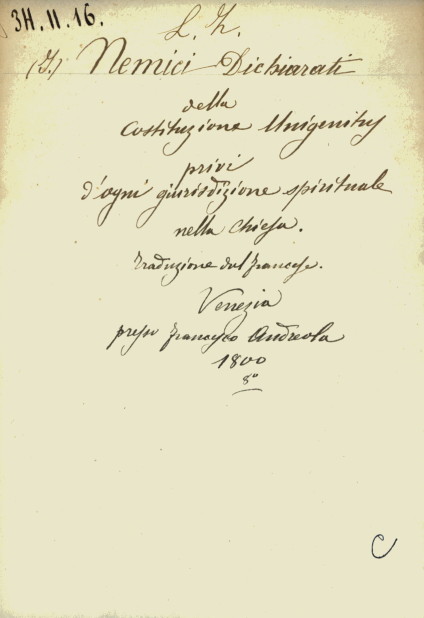 3H. II. 16.
L. h.
(I.) Nemici Dichiarati
della
Costituzione Unigenitus
privi
d'ogni giurisdizione spirituale
nella Chiesa.
Traduzione dal francese.
Venezia
presso Francesco Andreola
1800
8°
C